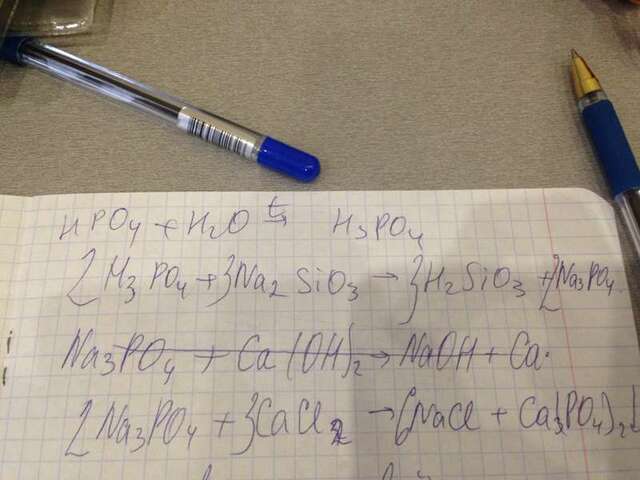 HPO4 + H2O t→ H3PO4
2H3PO4 + 3Na2SiO3 → 3H2SiO3 + 2Na3PO4
Na3PO4 + Ca(OH)2 → NaOH + Ca.
2Na3PO4 + 3CaCl2 → 6NaCl + Ca3(PO4)2↓